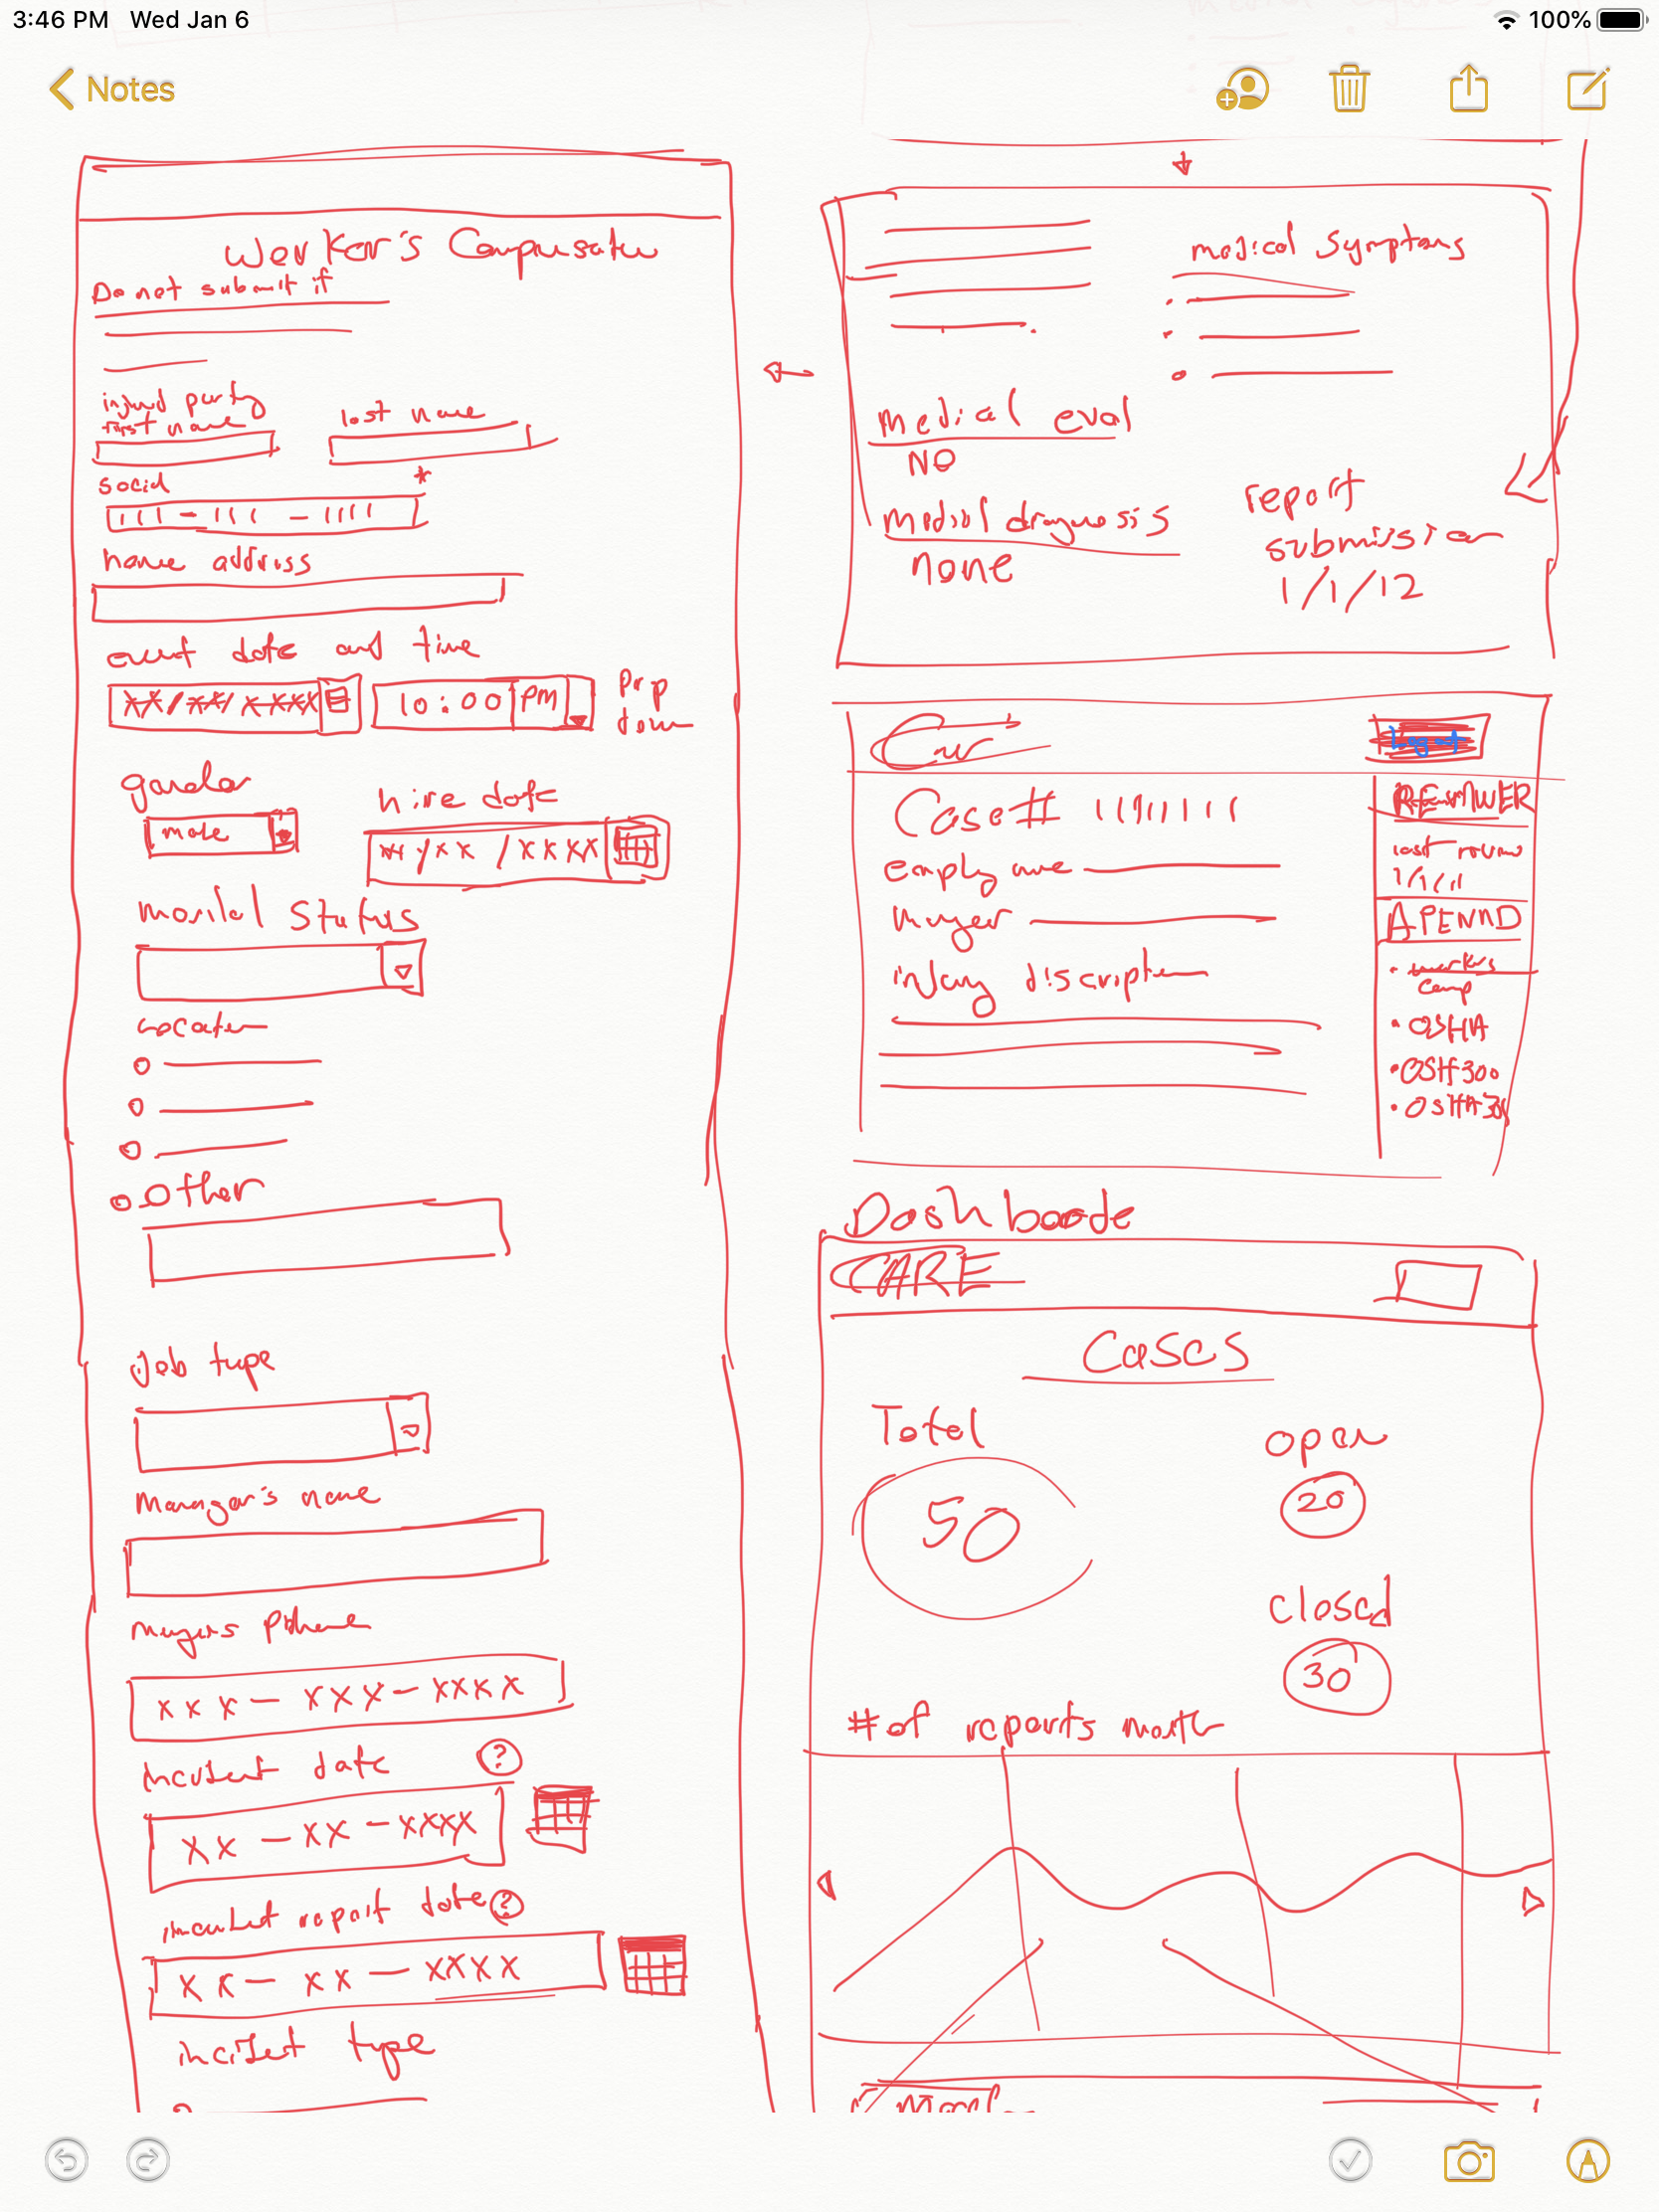 3:46 PM Wed Jan 6
100%
Notes
Worker's Compensatn
Do not submit if
injurd party
first name
last name
social
*
111 - 111 - 1111
home address
event date and time
XX/XX/XXXX
10:00 PM
Drop
down
gender
male
hire date
XX/XX/XXXX
Marital Status
Location
Other
Job type
Manager's name
XXX-XXX-XXXX
incident date ?
XX-XX-XXXX
incident report date ?
XX-XX-XXXX
incident type
medical symptoms
medical eval
NO
medical diagnosis
none
report
submission
1/1/12
Logout
Case# 11111111
injury discription
REVIEWER
last review
1/1/11
APENND
• workers
comp
• OSHA
• OSH300
Dashboade
CARE
Cases
Total
50
open
20
closed
30
# of reports month